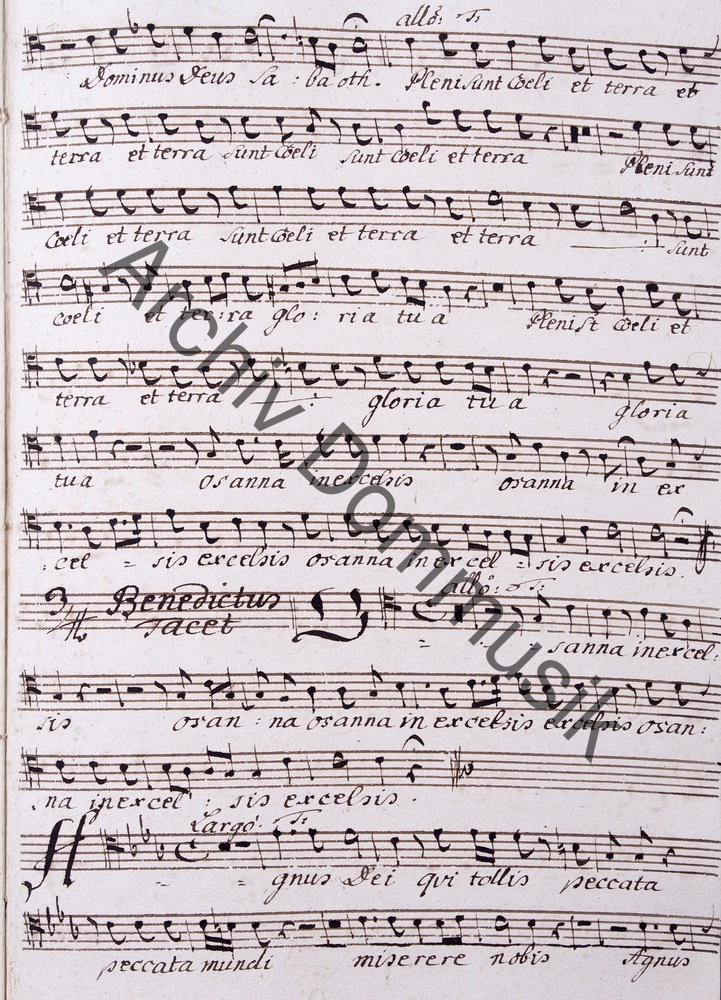 allo: T:
Dominus Deus Sa : ba oth. Pleni sunt Coeli et terra et
terra et terra sunt Coeli sunt Coeli et terra Pleni sunt
Coeli et terra sunt Coeli et terra et terra sunt
coeli et ter : ra glo : ria tu a Pleni st Coeli et
terra et terra gloria tu a gloria
tua osanna in excelsis osanna in ex
: cel = sis excelsis osanna in excel = sis excelsis.
3/4 Benedictus allo: T:
Tacet = sanna in excel:
sis osan : na osanna in excelsis excelsis osan :
na in excel : sis excelsis.
Largo: T:
= = gnus Dei qui tollis peccata
peccata mundi miserere nobis Agnus
Archiv Dommusik